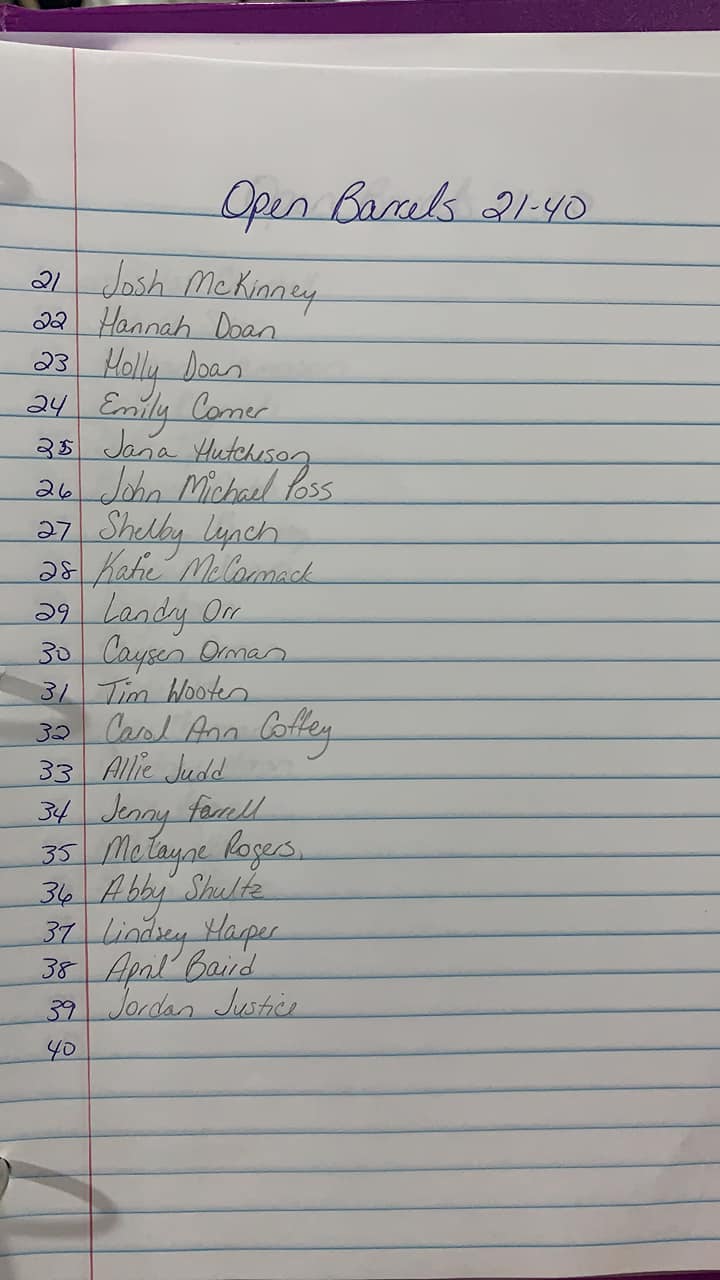 Open Barrels 21-40
21 Josh McKinney
22 Hannah Doan
23 Holly Doan
24 Emily Comer
25 Jana Hutchison
26 John Michael Poss
27 Shelby Lynch
28 Katie McCormack
29 Landy Orr
30 Caysen Orman
31 Tim Wooten
32 Carol Ann Coffey
33 Allie Judd
34 Jenny Farrell
35 McTayne Rogers
36 Abby Shultz
37 Lindsey Harper
38 April Baird
39 Jordan Justice
40